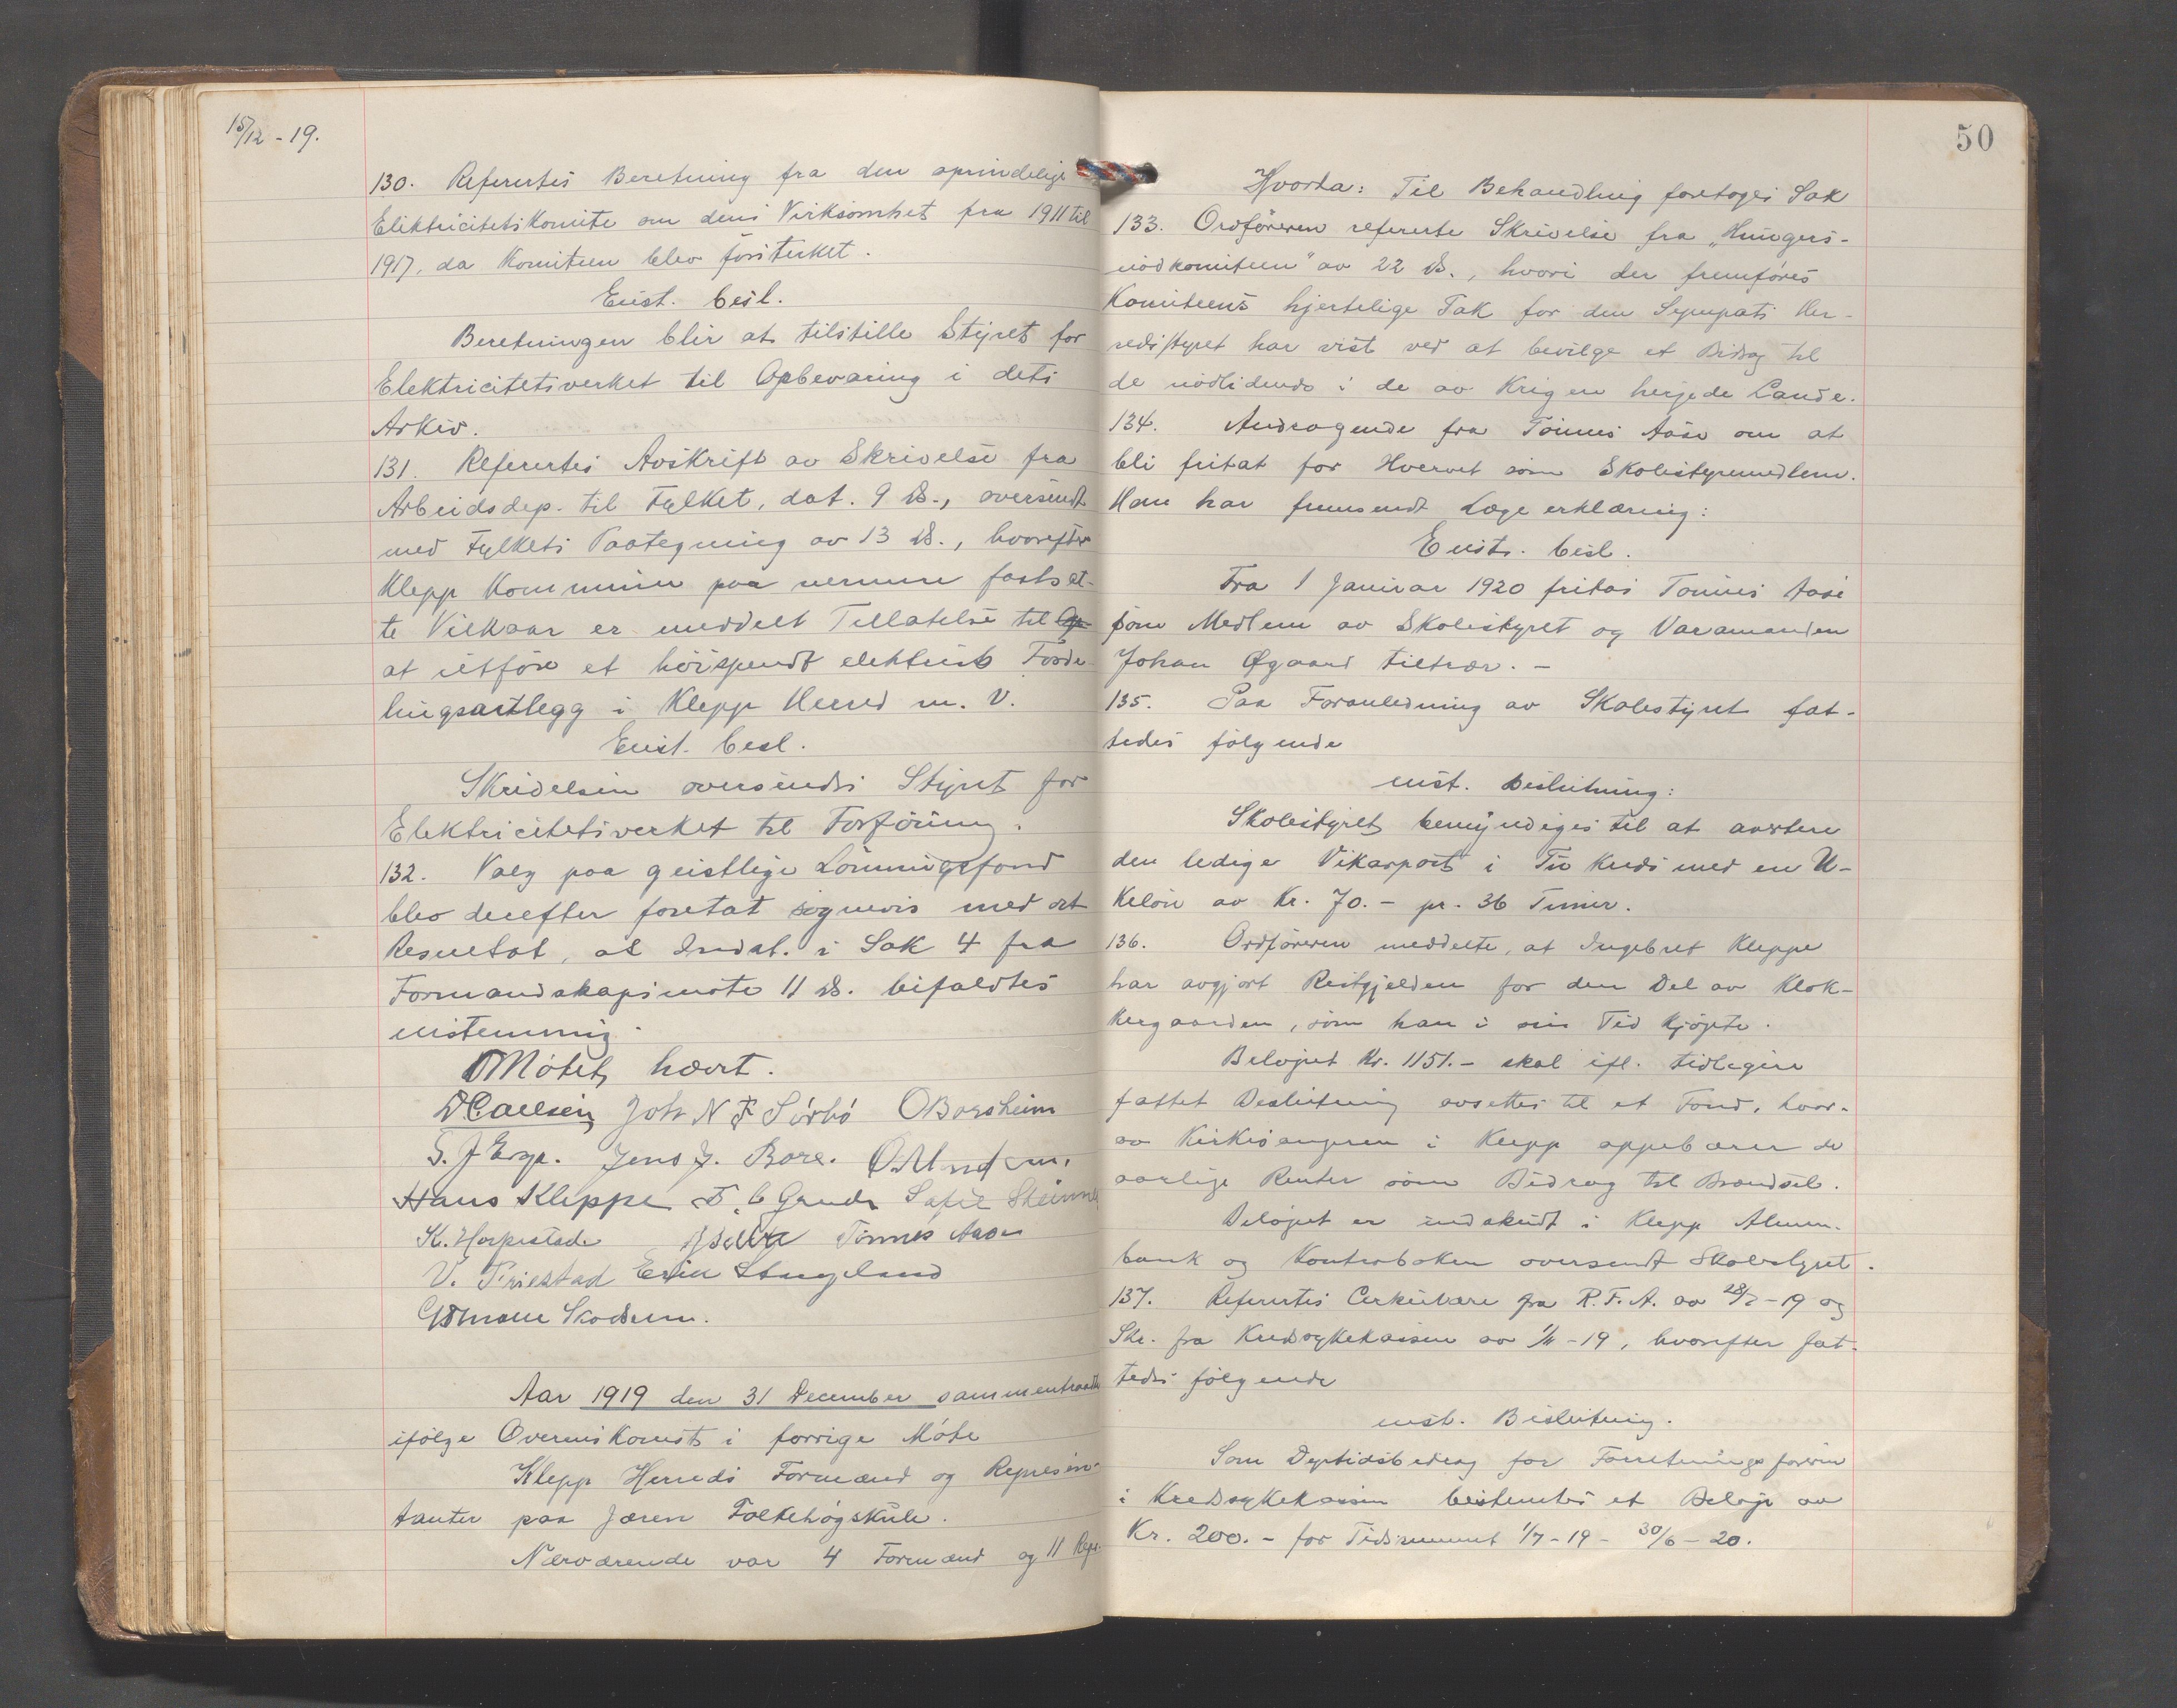 15/12 - 19.
130. Refertes Beretning fra den oprindelige
Elektricitetskomite om dens Virksomhet fra 1911 til
1917, da Komiteen blev forsterket.
Enst. besl.
Beretningen blir at tilstille Styret for
Elektricitetsverket til Opbevaring i dets
Arkiv.
131. Refertes Avskrift av Skrivelse fra
Arbeidsdep. til Fylket, dat. 9 ds., oversendt
med Fylkets Paategning av 13 ds., hvorefter
Klepp Kommune paa nermere fastsat-
te Vilkaar er meddelt Tillatelse til
at utføre et høispendt elektrisk Forde-
lingsanlegg i Klepp Herred m. V.
Enst. besl.
Skrivelsen oversendes Styret for
Elektricitetsverket til Forføining.
132. Valg paa geistlige Lønningsfond
blev derefter foretat sognevis med det
Resultat, at Indst. i Sak 4 fra
Formandskapsmøte 11 ds. bifaldtes
enstemmig.
Møtet hævt.
Joh N F Sørbø O Borsheim
S. J Erge. Jens J. Bore.
Hans Kleppe Sofie
K. Horpestad Tønnes Aase
V. Friestad Erik Stangeland
Skadsem.
Aar 1919 den 31 December sammentraadte
ifølge Overenskomst i forrige Møte
Klepp Herreds Formænd og Represen-
tanter paa Jæren Folkehøgskule.
Nærværende var 4 Formænd og 11 Repr.
50
Hvorda: Til Behandling foretoges Sak
133. Ordføreren refererte Skrivelse fra „Hungers-
nødkomiteen" av 22 ds., hvori der fremføres
Komiteens hjertelige Tak for den Sympati Her-
redsstyret har vist ved at bevilge et Bidrag til
de nødlidende i de av Krigen herjede Lande.
134. Andragende fra Tønnes Aase om at
bli fritat for Hvervet som Skolestyremedlem.
Han har fremsendt Lægeerklæring:
Enst. besl.
Fra 1 Januar 1920 fritas Tønnes Aase
som Medlem av Skolestyret og Varamanden
Johan Øgaard tiltrær. -
135. Paa Foranledning av Skolestyret fat-
tedes følgende
enst. Beslutning:
Skolestyret bemyndiges til at avertere
den ledige Vikarpost i Tu Kreds med en U-
keløn av Kr. 70.- pr. 36 Timer.
136. Ordføreren meddelte, at Ingebret Kleppe
har avgjort Restgjelden for den Del av Klok-
kergaarden, som han i sin Tid kjøpte.
Beløpet Kr. 1151.- skal ifl. tidligere
fattet Beslutning avsettes til et Fond, hvor-
av Kirkesangeren i Klepp oppebærer de
aarlige Renter som Bidrag til Brændsel.
Beløpet er indskudt i Klepp Almen.
bank og Kontraboken oversendt Skolestyret.
137. Refertes Cirkulære fra R.F.A. av 28/2-19 og
Skr. fra Kredssykekassen av 1/11-19, hvorefter fat-
tedes følgende
enst. Beslutning.
Som Dyrtidsbidrag for Forretningsføreren
i Kredssykekassen bestemtes et Beløp av
Kr. 200.- for Tidsrummet 1/7-19 - 30/6-20.